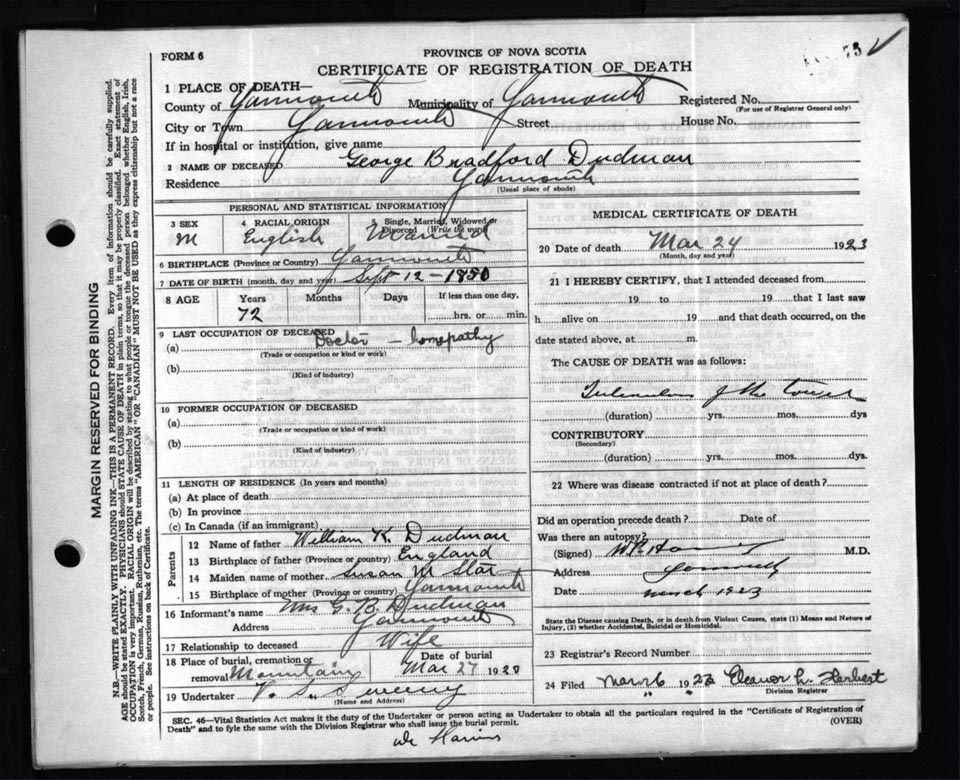 75 ✓
FORM 6
PROVINCE OF NOVA SCOTIA
CERTIFICATE OF REGISTRATION OF DEATH
1 PLACE OF DEATH—
County of Yarmouth Municipality of Yarmouth Registered No.
(For use of Registrar General only)
City or Town Yarmouth Street House No.
If in hospital or institution, give name
2 NAME OF DECEASED George Bradford Dudman
Residence Yarmouth
(Usual place of abode)
PERSONAL AND STATISTICAL INFORMATION
3 SEX 4 RACIAL ORIGIN 5 Single, Married, Widowed or Divorced (Write the word)
M English Married
6 BIRTHPLACE (Province or Country) Yarmouth
7 DATE OF BIRTH (month, day and year) Sept 12 - 1850
8 AGE Years Months Days If less than one day,
72 hrs. or min.
9 LAST OCCUPATION OF DECEASED
(a) Doctor - homopathy
(Trade or occupation or kind or work)
(b)
(Kind of industry)
10 FORMER OCCUPATION OF DECEASED
(a)
(Trade or occupation or kind of work)
(b)
(Kind of industry)
11 LENGTH OF RESIDENCE (In years and months)
(a) At place of death
(b) In province
(c) In Canada (if an immigrant)
Parents
12 Name of father William K. Dudman
13 Birthplace of father (Province or country) England
14 Maiden name of mother Susan M Star
15 Birthplace of mother (Province or country) Yarmouth
16 Informant's name Mrs G. B. Dudman
Address Yarmouth
17 Relationship to deceased Wife
18 Place of burial, cremation or removal Mountain Date of burial Mar 27 1920
19 Undertaker V. S. Sweeny
(Name and Address)
MEDICAL CERTIFICATE OF DEATH
20 Date of death Mar 24 1923
(Month, day and year)
21 I HEREBY CERTIFY, that I attended deceased from
19 to 19 that I last saw
h alive on 19 and that death occurred, on the
date stated above, at m.
The CAUSE OF DEATH was as follows:
of the
(duration) yrs. mos. dys
CONTRIBUTORY
(Secondary)
(duration) yrs. mos. dys.
22 Where was disease contracted if not at place of death?
Did an operation precede death? Date of
Was there an autopsy?
(Signed) M.D.
Address Yarmouth
Date March 1923
State the Disease causing Death, or in death from Violent Causes, state (1) Means and Nature of
Injury, (2) whether Accidental, Suicidal or Homicidal.
23 Registrar's Record Number
24 Filed 1923 Eleanor L. Herbert
Division Registrar
SEC. 46—Vital Statistics Act makes it the duty of the Undertaker or person acting as Undertaker to obtain all the particulars required in the "Certificate of Registration of
Death" and to fyle the same with the Division Registrar who shall issue the burial permit. (OVER)
MARGIN RESERVED FOR BINDING
N.B.—WRITE PLAINLY WITH UNFADING INK—THIS IS A PERMANENT RECORD. Every item of information should be carefully supplied.
AGE should be stated EXACTLY. PHYSICIANS should STATE CAUSE OF DEATH in plain terms, so that it may be properly classified. Exact statement of
OCCUPATION is very important. RACIAL ORIGIN will be described by stating to what people or tongue the deceased person belonged whether English, Irish,
Scotch, French, German, Russian, Ruthenian, etc. The terms "AMERICAN" OR "CANADIAN" MUST NOT BE USED as they express citizenship but not a race
or people. See instructions on back of Certificate.